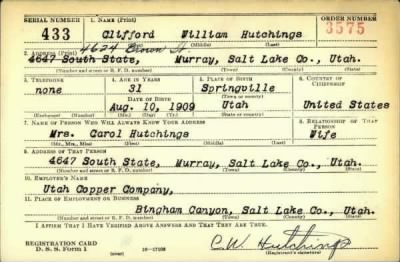 SERIAL NUMBER 1. NAME (Print) ORDER NUMBER
433 Clifford William Hutchings 3575
(First) (Middle) (Last)
4624 St.
2. ADDRESS (Print)
4647 South State, Murray, Salt Lake Co., Utah.
(Number and street or R. F. D. number) (Town) (County) (State)
3. TELEPHONE 4. AGE IN YEARS 5. PLACE OF BIRTH 6. COUNTRY OF CITIZENSHIP
none 31 Springville
DATE OF BIRTH (Town or county)
Aug. 10, 1909 Utah United States
(Mo.) (Day) (Yr.) (State or country)
7. NAME OF PERSON WHO WILL ALWAYS KNOW YOUR ADDRESS 8. RELATIONSHIP OF THAT PERSON
Mrs. Carol Hutchings Wife
(Mr., Mrs., Miss) (First) (Middle) (Last)
9. ADDRESS OF THAT PERSON
4647 South State, Murray, Salt Lake Co., Utah.
(Number and street or R. F. D. number) (Town) (County) (State)
10. EMPLOYER'S NAME
Utah Copper Company,
11. PLACE OF EMPLOYMENT OR BUSINESS
Bingham Canyon, Salt Lake Co., Utah.
(Number and street or R. F. D. number) (Town) (County) (State)
I AFFIRM THAT I HAVE VERIFIED ABOVE ANSWERS AND THAT THEY ARE TRUE.
REGISTRATION CARD
D. S. S. Form 1
(over)
C.W. Hutchings
(Registrant's signature)